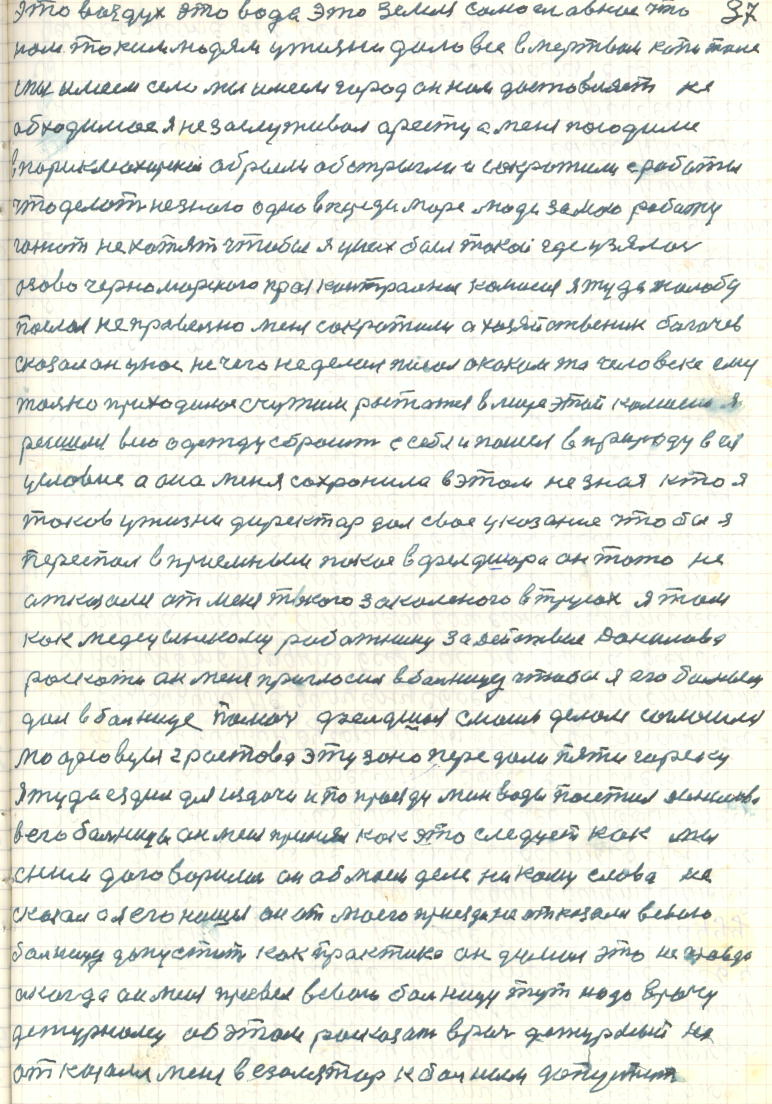 это воздух это вода это земля самое главное что 37
нам таким людям у жизни дало все в мертвом капитале
мы имеем село мы имеем город он нам доставляет не
обходимое я не заслуживал аресту а меня посодили
в парикмахерской обрили обстригли и сократили с работы
что делать не знаю одно впереди море люди за мою работу
гонют не хотят чтобы я у них был такой где узялась
озово черноморского края контрольная комисия я туда жалобу
послал неправельно меня сократили а хозяйственик богачев
сказал он у нас нечего не делал писал о каком то человеке ему
только приходилось с чужим ростатся в лице этой комисии я
решил всю одежду сбросить с себя и пошел в природу в ея
условие а она меня сохронила в этом не зная кто я
таков у жизни директар дал свое указание чтобы я
переспал в приемным покое в фелдшора он тото не
отказался от меня такого закаленого в трусах я там
как медецынскому работнику за действие Данилова
росказал он меня пригласил в болницу чтобы я его болным
дал в болнице помоч фелдшыл смоим делом согласился
моа г Ростова эту зону передали пятигорску
я туда ездил для издачи и по проезду мин воды посетил
в его болницы он меня принял как это следует как мы
сним договорилися он об моем деле никому слова не
сказал а я его нашел он от моего приезда не отказался всвою
болницу допустить как практика он думал это не правда
а когда он меня провел всвою болницу тут надо врачу
дежурному об этом росказат врач дежурный не
отказался меня в езолятар к болным допустить